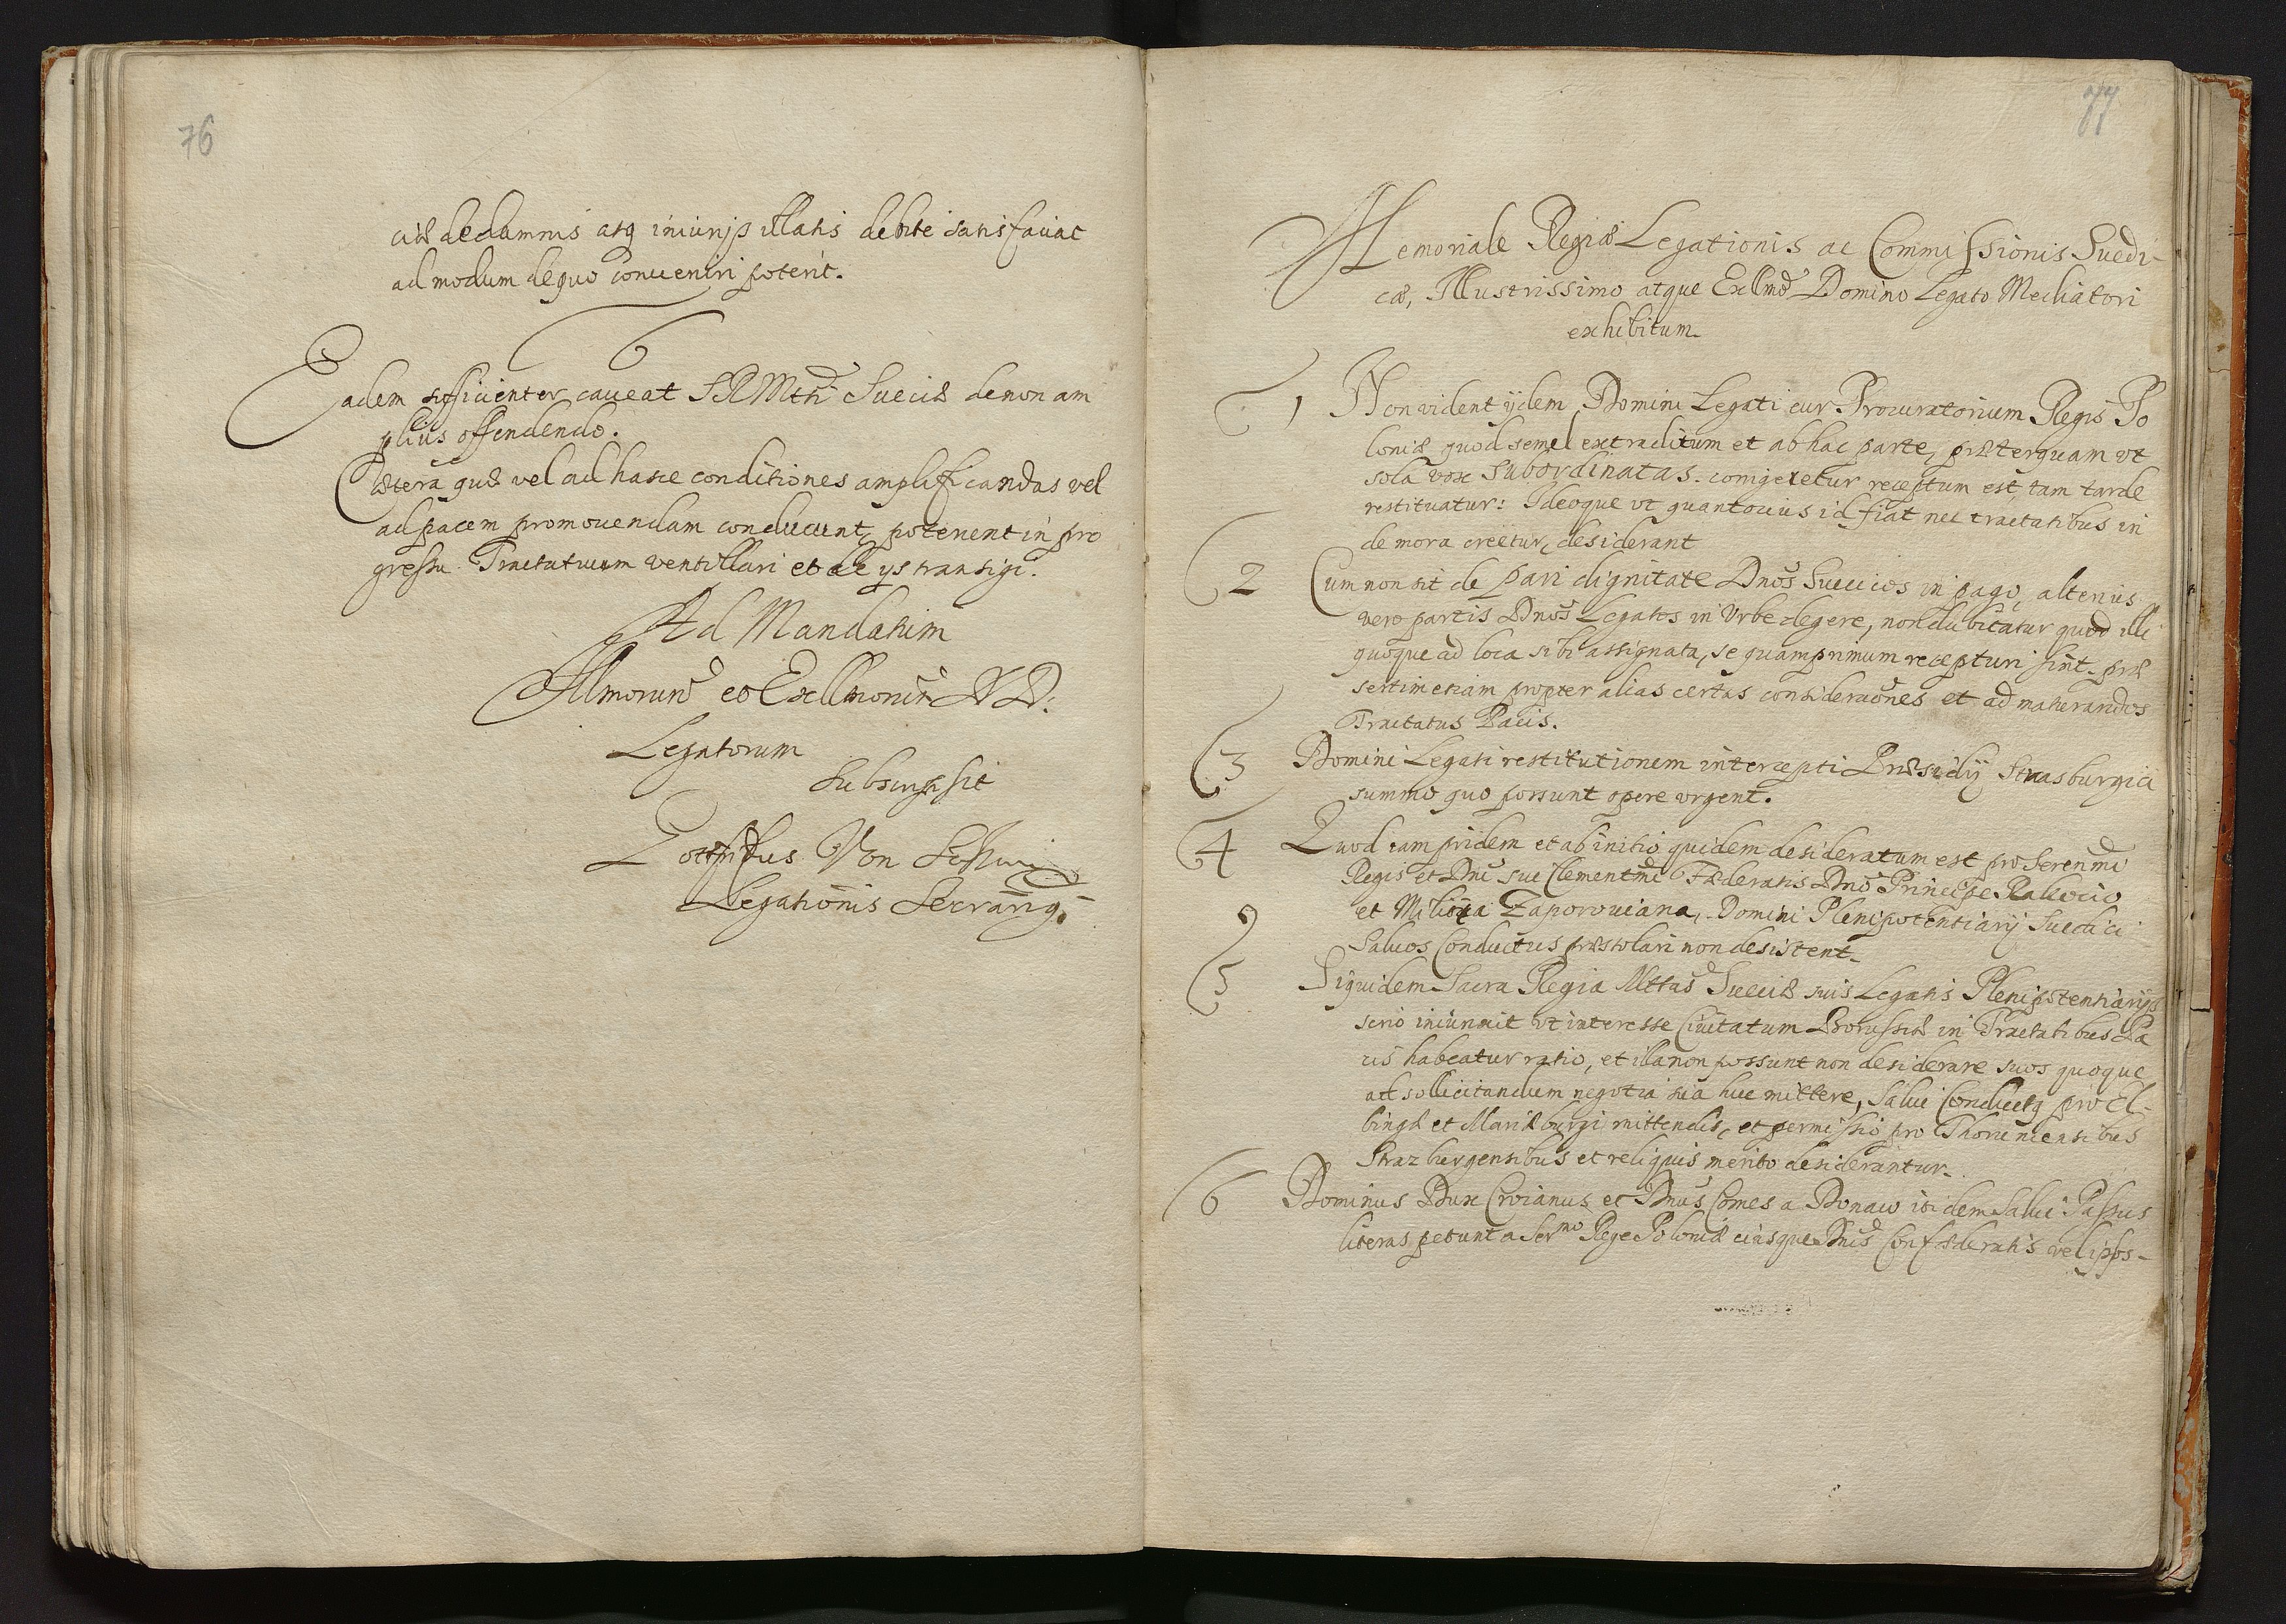 76
ciæ de damnis atq iniurijs illatis debite satisfaciat
ad modum de quo conveniri poterit.
6
Eadem sufficienter caveat S R Mtti Sueciæ de non am
plius offendendo.
Cætera quæ vel ad hasce conditiones amplificandas vel
ad pacem promouendam conducunt, poterunt in pro
gressu Tractatuum ventillari et de ijs transigi.
Ad Mandatum
Illmorum et Excellmorum D D:
Legatorum
Subscripsit
Von
Legationis Secrariq.
77
Memoriale Regiæ Legationis ac Commissionis Suedi-
cæ, Illustrissimo atque Exllmo Domino Legato Mediatori
exhibitum.
1 Non vident ijdem Domini Legati cur Procuratorium Regis Po
loniæ quod semel extraditum et ab hac parte, præterquam vt
sola vox Subordinatas. corrigeretur receptum est, tam tarde
restituatur: Ideoque vt quantocius id fiat nec tractatibus in
de mora creetur, desiderant
2 Cum non sit de pari dignitate Dnos Suecicos in pago, alterius
vero partis Dnos Legatos in Vrbe degere, non dubitatur quod illi
quoque ad loca sibi assignata, se quamprimum recepturi sint. præ
sertim etiam propter alias certas consideraones et ad maturandos
Tractatus Pacis.
3 Domini Legati restitutionem intercepti Præsidij Strasburgici
summo quo possunt opere vrgent.
4 Quod iam pridem et ab initio quidem desideratum est pro Serenmi
Regis et Dni sui Clementmi Fæderatis Dno Principe Rakocio
et Militia Zaporouiana, Domini Plenipotentiarij Suedici
Saluos Conductus præstolari non desistent.
5 Siquidem Sacra Regia Mttas Sueciæ suis Legatis Plenipotentiarijs
serio iniunxit vt interesse Ciuitatum Borussiæ in Tractatibus Pa
cis habeatur ratio, et illa non possunt non desiderare suos quoque
ad sollicitandum negotia sua huc mittere, Salui Conductq pro El-
bingæ et Mariæburgi mittendis, et permissio pro Thoruniensibus
Strazburgensibus et reliquis merito desiderantur.
6 Dominus Dux Croianus et Dnus Comes a Donaw itidem Salui Passus
literas petunt a Sermo Rege Poloniæ eiusque Dnis Confæderatis vel ipsos-